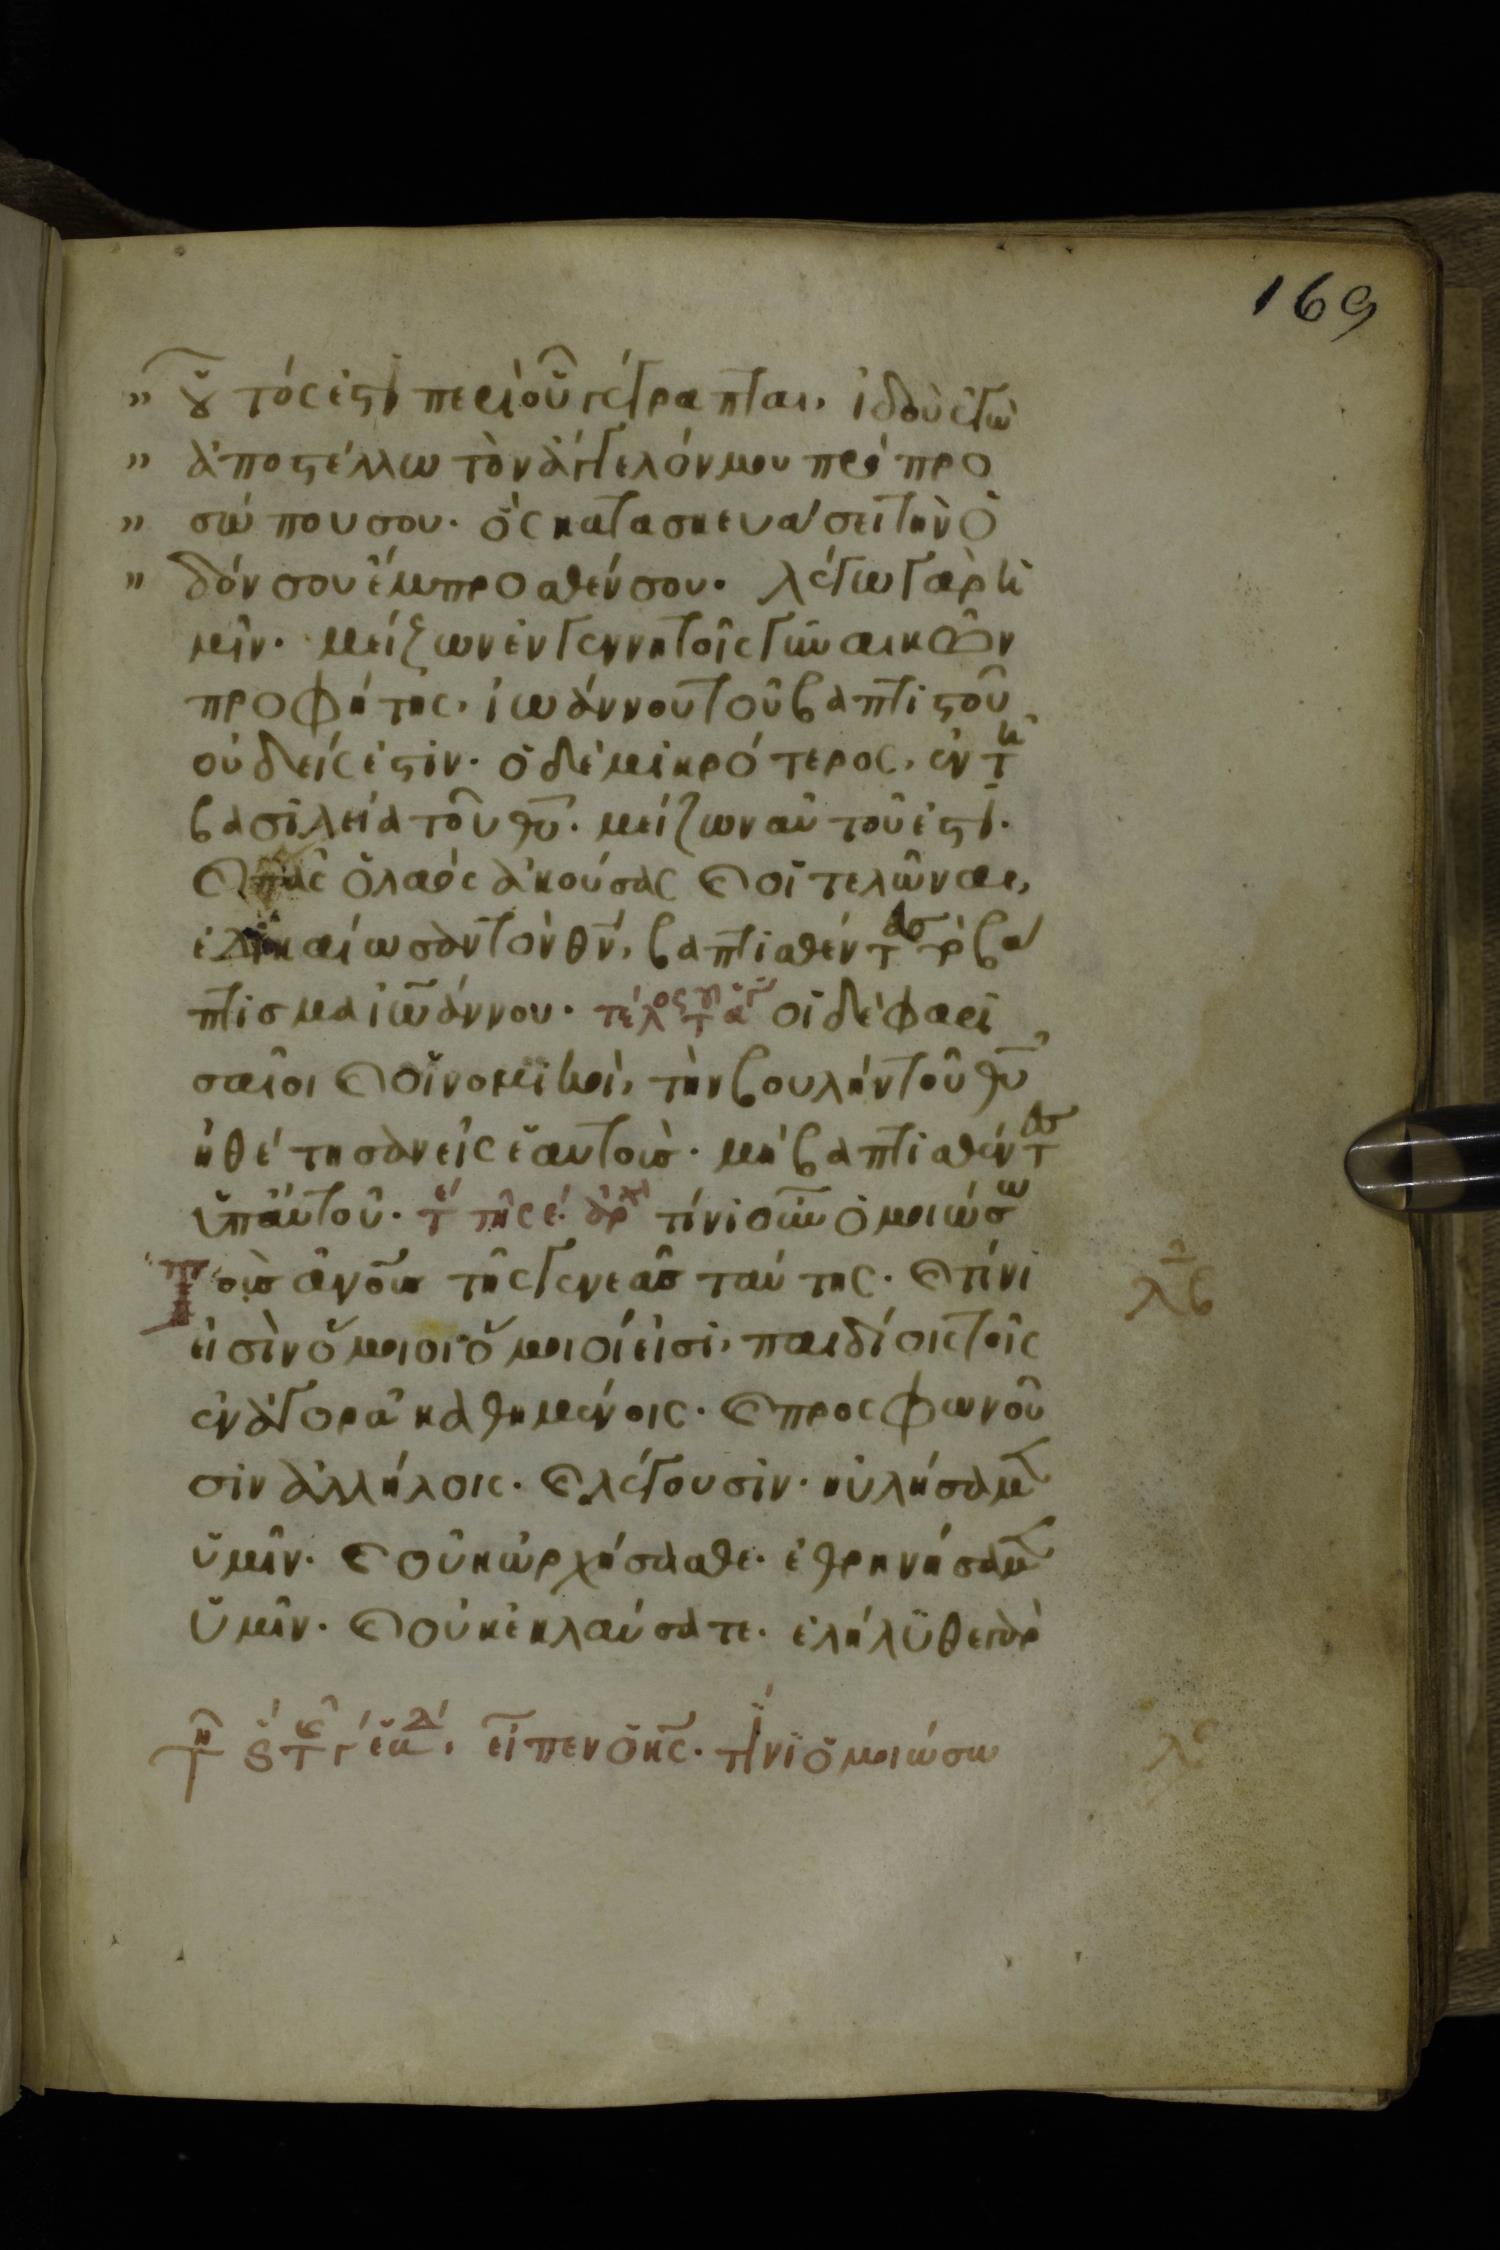 169
οὗτός ἐστι περὶ οὗ γέγραπται, ἰδοὺ ἐγὼ
ἀποστέλλω τὸν ἄγγελόν μου πρὸ προ
σώπου σου· ὃς κατασκευάσει τὴν ὁ
δόν σου ἔμπροσθέν σου· λέγω γὰρ ὑ
μῖν· μείζων ἐν γεννητοῖς γυναικῶν
προφήτης, ἰωάννου τοῦ βαπτιστοῦ
οὐδείς ἐστιν· ὁ δὲ μικρότερος, ἐν τῆ
βασιλεία τοῦ θυ· μείζων αὐτοῦ ἐστί·
καὶ πᾶς ὁ λαὸς ἀκούσας καὶ οἱ τελῶναι,
ἐδικαίωσαν τὸν θν, βαπτισθέντες τὸ βά
πτισμα ἰωάννου· τέλος οἱ δὲ φαρι
σαῖοι καὶ οἱ νομικοὶ, τὴν βουλὴν τοῦ θυ
ἠθέτησαν εἰς ἑαυτούς· μὴ βαπτισθέντες
ὑπ' αὐτοῦ· τέ τῆς ε· ἀρχ τίνι οὖν ὁμοιώσω
Τοὺς ἀνους τῆς γενεᾶς ταύτης· καὶ τίνι
εἰσὶν ὅμοιοι· ὅμοιοί εἰσι, παιδίοις τοῖς
ἐν ἀγορᾶ καθημένοις· καὶ προσφωνοῦ
σιν ἀλλήλοις· καὶ λέγουσιν· ηὐλήσαμεν
ὑμῖν· καὶ οὐκ ὠρχήσασθε· ἐθρηνήσαμεν
ὑμῖν· καὶ οὐκ ἐκλαύσατε· ἐλήλυθε γὰρ
λβ
εἶπεν ὁ κς· τίνι ὁμοιώσω